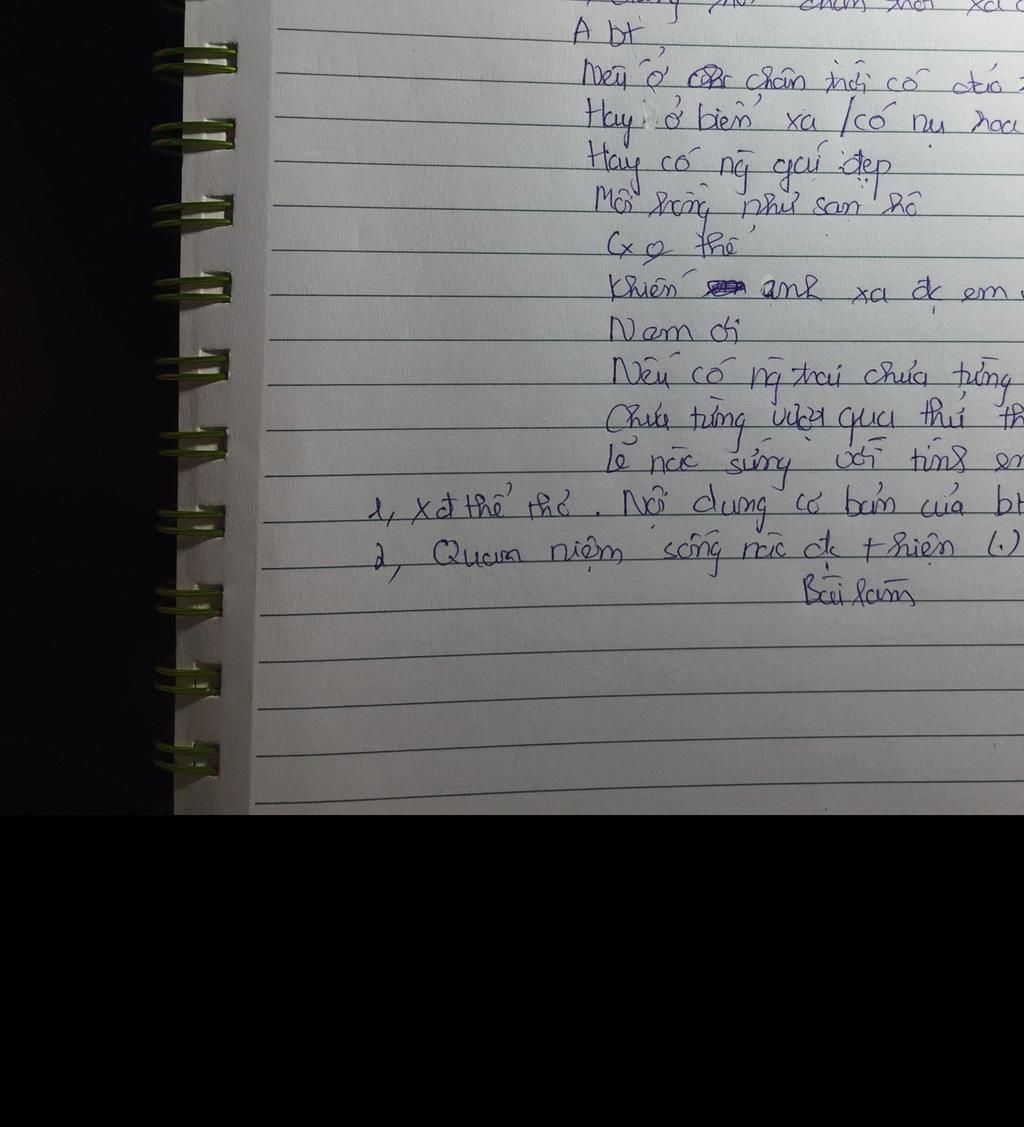 chân trời xa
A bt
Nếu ở chân trời có đảo
Hay ở biển xa / có nụ hoa
Hay có ng̃ gái đẹp
Môi hồng như san hô
Cx ko thể
Khiến anh xa đc em
Nam ơi
Nếu có ng̃ trai chưa từng
Chưa từng vượt qua thử th
Lẽ nào sứng với tìnhs em
1, Xđ thể thơ. Nội dung cơ bản của bt
2, Quan niệm sống nào đc t hiện (.)
Bài làm